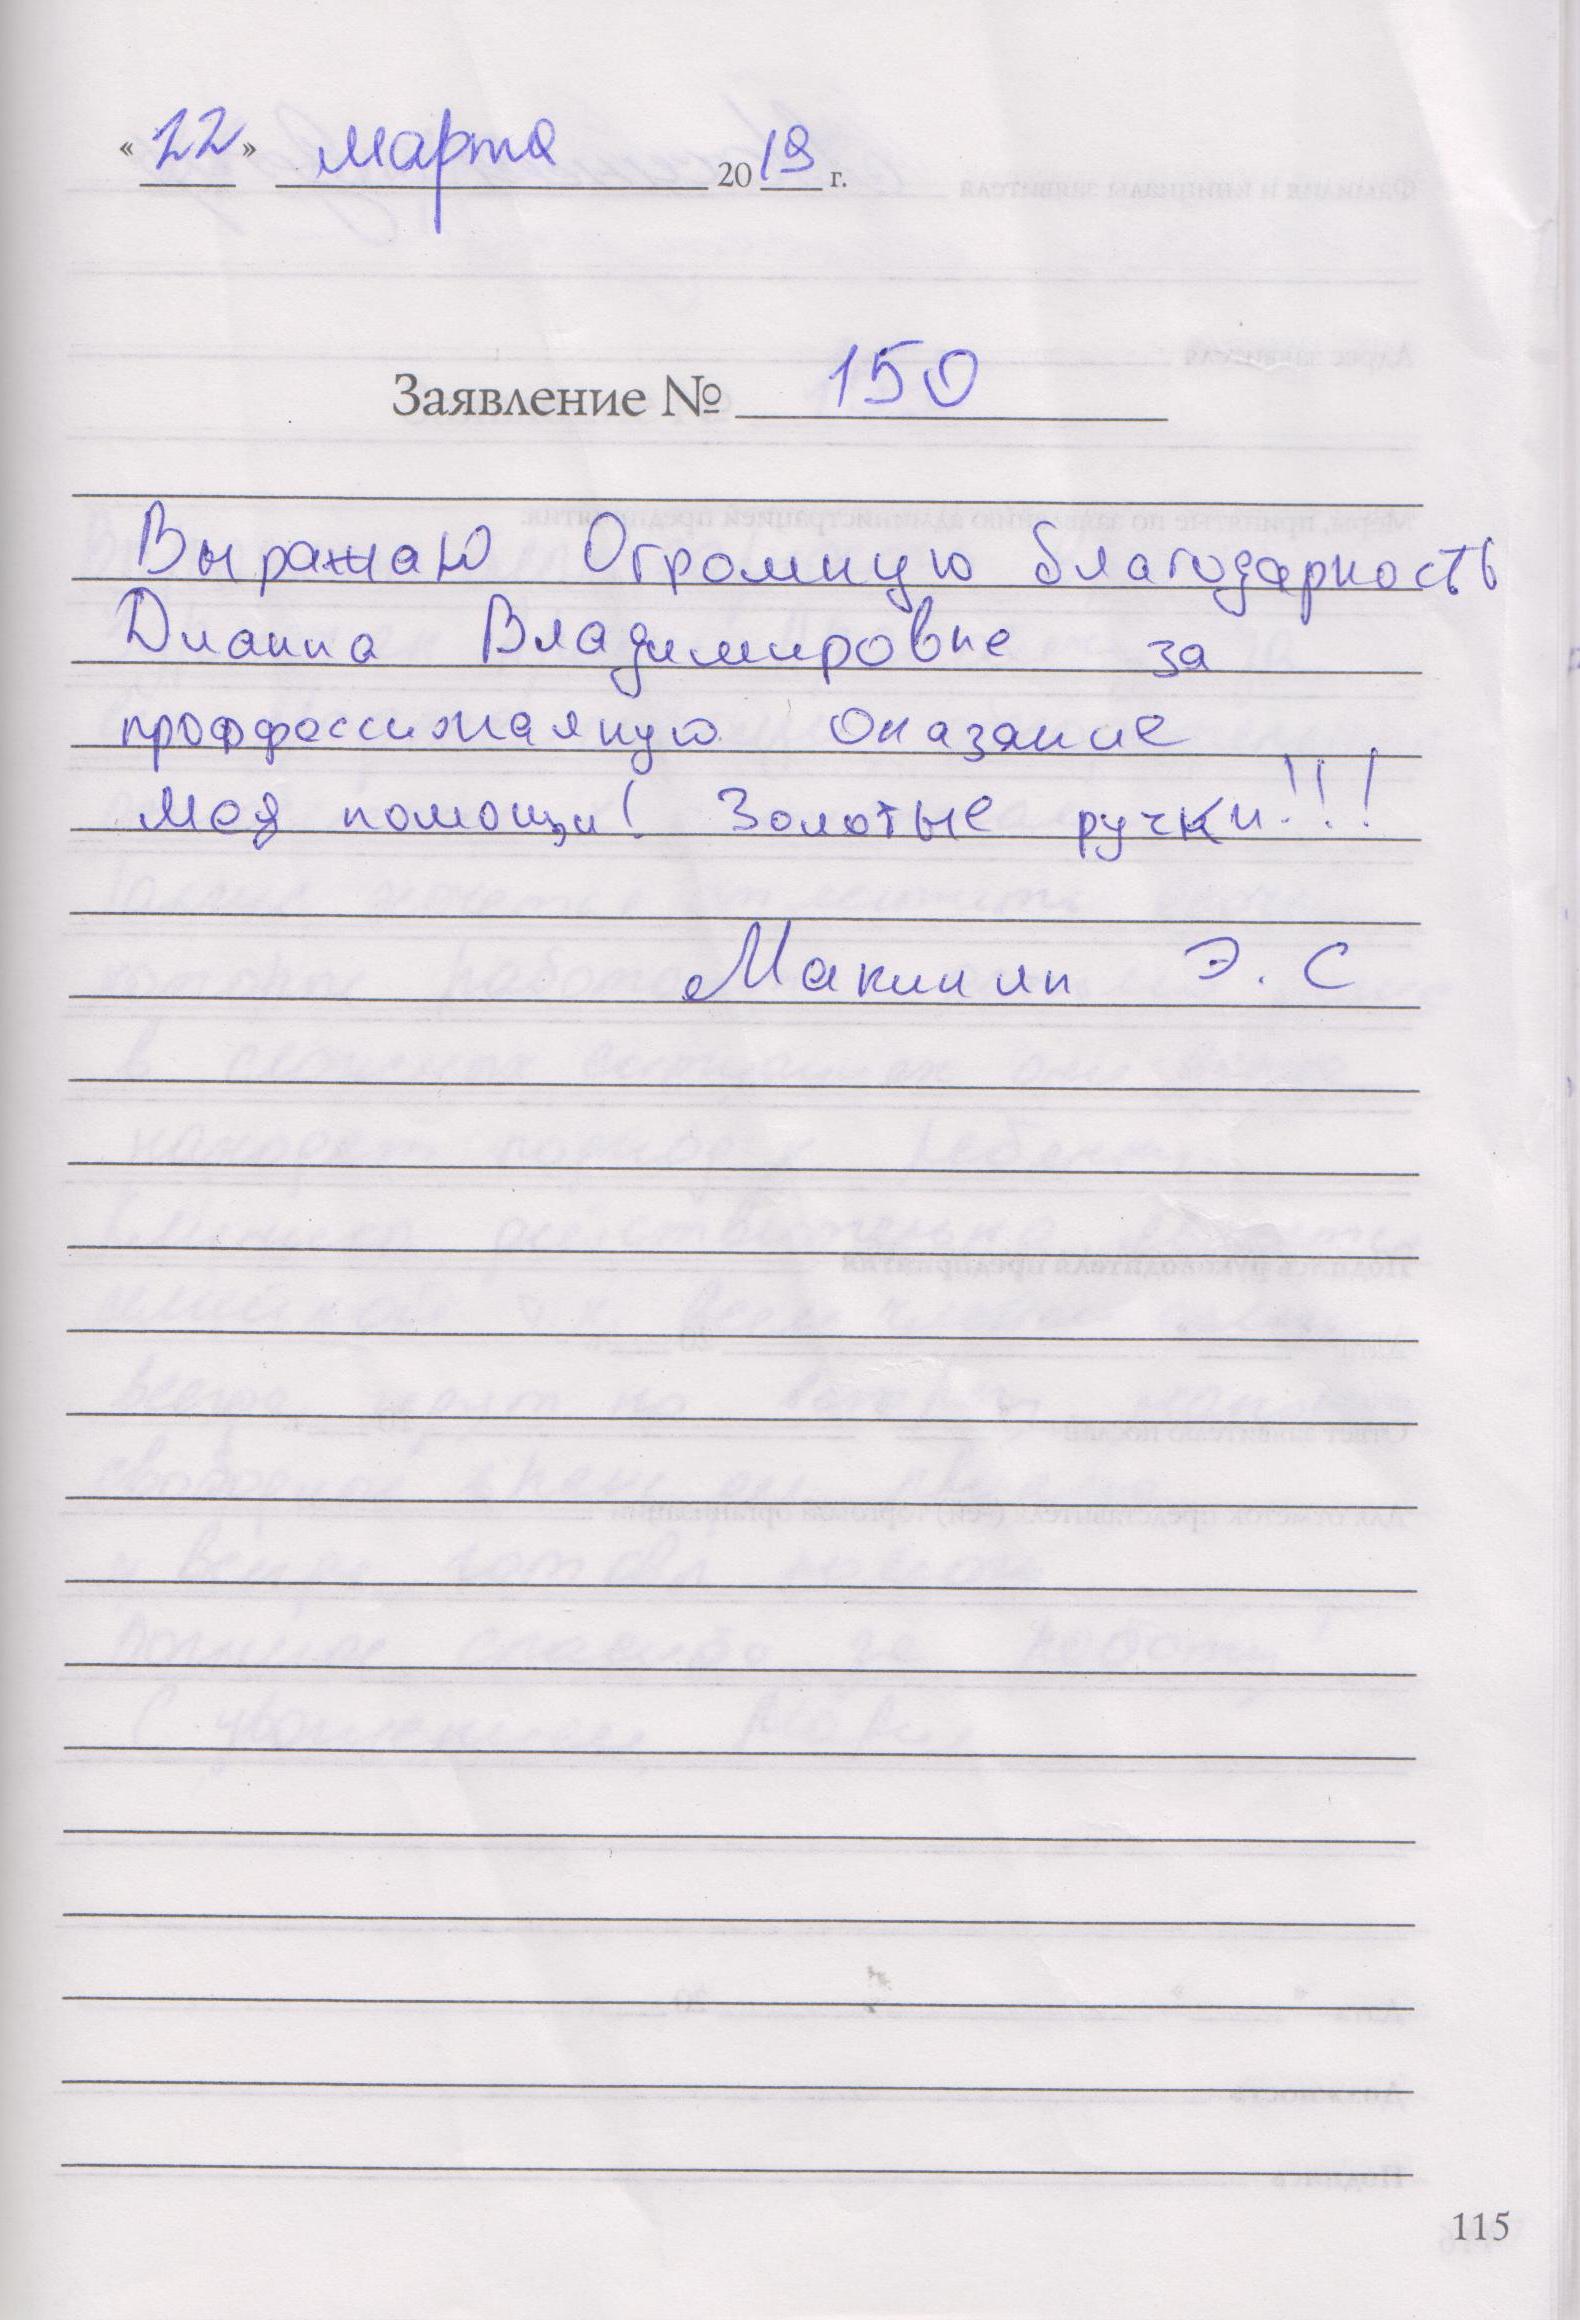 « 22 » марта 2019 г.
Заявление № 150
Выражаю Огромную благодарность
Дианна Владимировне за
проффессиональную оказание
мед помощи! Золотые ручки!!!
Э. С
115